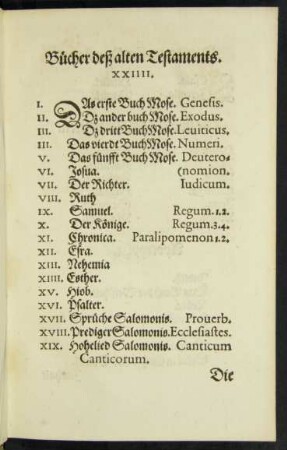 Bücher deß alten Testaments.
XXIIII.
I. DAs erste Buch Mose. Genesis.
II. Dz ander buch Mose. Exodus.
III. Dz dritt Buch Mose. Leuiticus.
III. Das vierdt Buch Mose. Numeri.
V. Das fünfft Buch Mose. Deutero-
VI. Josua. (nomion.
VII. Der Richter. Iudicum.
VIII. Ruth
IX. Samuel. Regum.1.2.
X. Der Könige. Regum.3.4.
XI. Chronica. Paralipomenon 1.2.
XII. Esra.
XIII. Nehemia
XIIII. Esther.
XV. Hiob.
XVI. Psalter.
XVII. Sprüche Salomonis. Prouerb.
XVIII. Prediger Salomonis. Ecclesiastes.
XIX. Hohelied Salomonis. Canticum
Canticorum.
Die